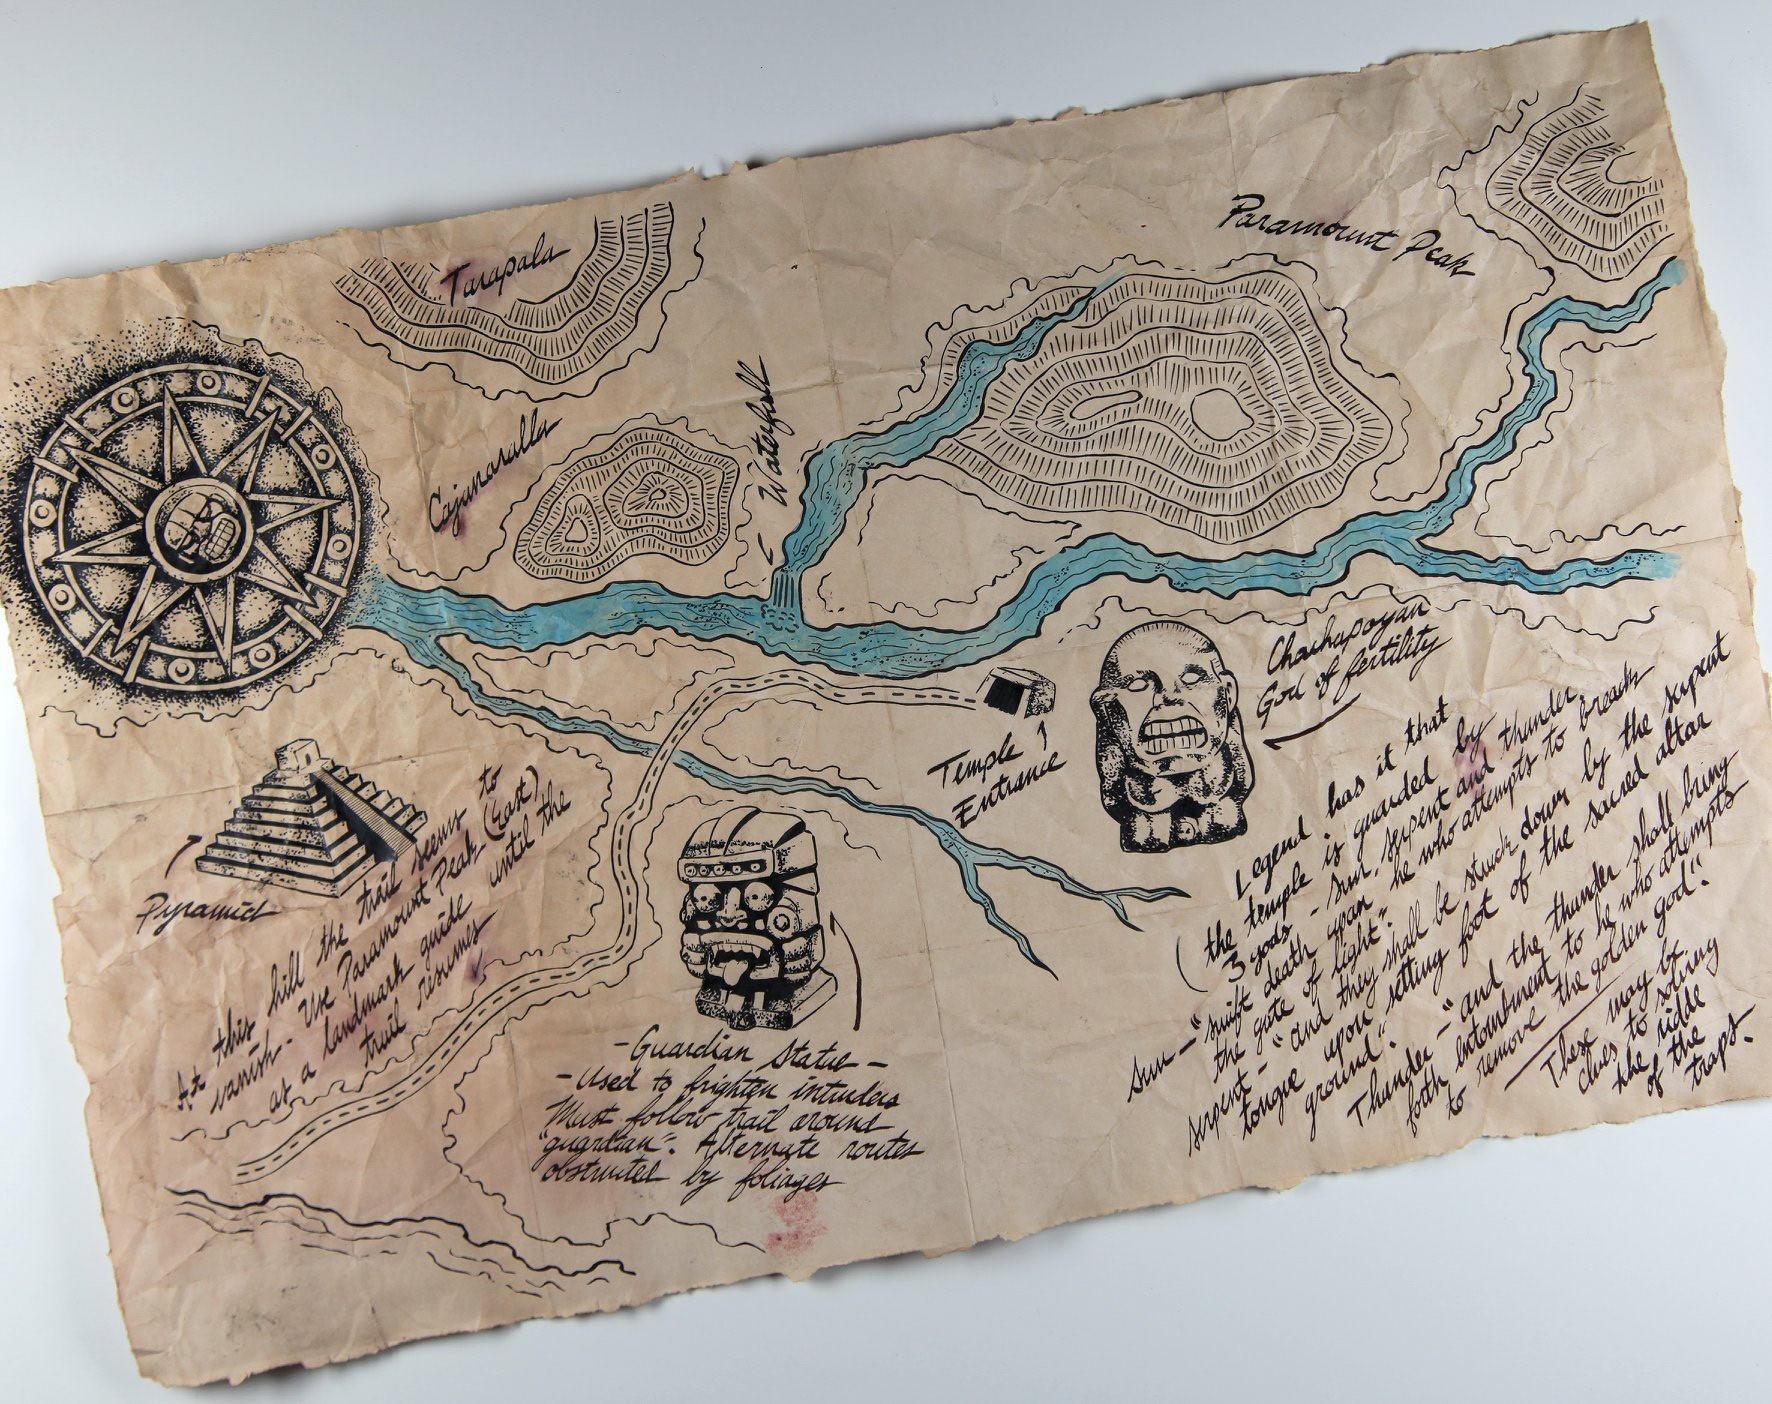 Tarapala
Paramount Peak
Cajunaralla
Waterfall
Chachapoyan
God of fertility
Temple
Entrance
Pyramid
At this hill the trail seems to
vanish. Use Paramount Peak (East)
as a landmark guide until the
trail resumes
- Guardian Statue -
- Used to frighten intruders
Must follow trail around
"guardian". Alternate routes
obstructed by foliages
Legend has it that
the temple is guarded by
3 gods - sun, serpent and thunder
sun - "swift death upon he who attempts to breach
the gate of light."
serpent - "and they shall be struck down by the serpent
tongue upon setting foot of the sacred altar
ground."
Thunder - "and the thunder shall bring
forth entombment to he who attempts
to remove the golden god".
These may be
clues to solving
the riddle
of the
traps.